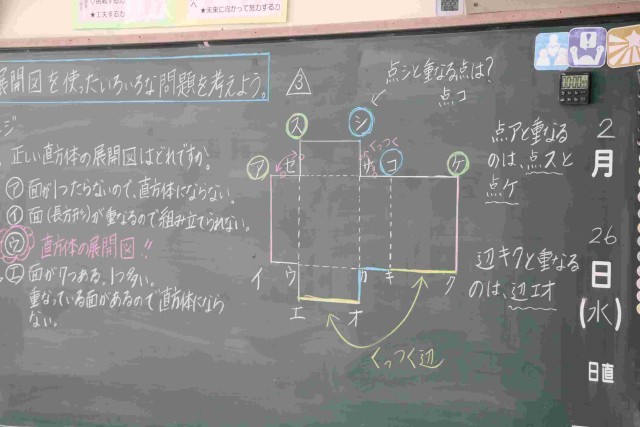 ★工夫する力
★未来に向かって努力する力
展開図を使ったいろいろな問題を考えよう。
3
点シと重なる点は?
点コ
正しい直方体の展開図はどれですか。
ア 面が1つたらないので、直方体にならない。
イ 面(長方形)が重なるので組み立てられない。
ウ 直方体の展開図!!
エ 面が7つある。1つ多い。
重なっている面があるので直方体になら
ない。
ス シ
ア セ サ コ ケ
くっつく
イ ウ カ キ ク
エ オ
くっつく辺
点アと重なる
のは、点スと
点ケ
辺キクと重なる
のは、辺エオ
2
月
26
日
(水)
日直